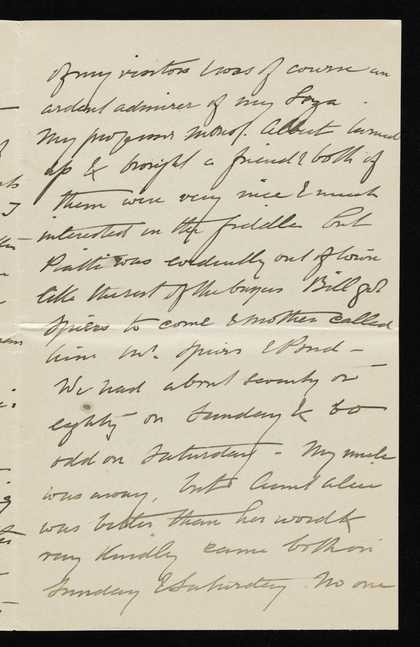 of my visitors was of course an
ardent admirer of my Goya.
My professor Mons. Albert turned
up & brought a friend & both of
them were very nice & much
interested in the fiddles but
Piatti was evidently out of town
like the rest of the buyers Bill got
Spiers to come & mother called
him Mr. Spiers & Pond –
We had about seventy or
eighty on Sunday & 50
odd on Saturday – My uncle
was away, but Aunt Alice
was better than her word &
very kindly came both on
Sunday & Saturday. No one